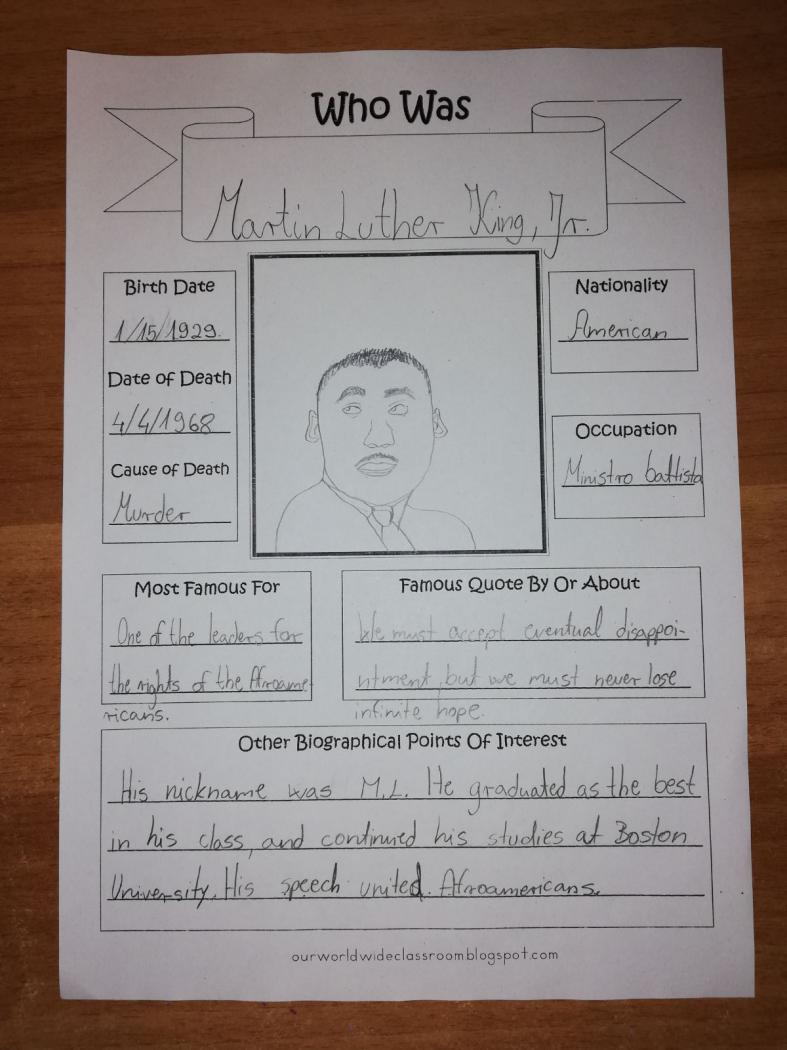 Who Was
Martin Luther King, Jr.
Birth Date
1/15/1929.
Date of Death
4/4/1968
Cause of Death
Murder
Nationality
American
Occupation
Ministro battista
Most Famous For
One of the leaders for
the rights of the Afroame-
ricans.
Famous Quote By Or About
We must accept eventual disappoi-
ntment, but we must never lose
infinite hope.
Other Biographical Points Of Interest
His nickname was M.L. He graduated as the best
in his class, and continued his studies at Boston
University. His speech united Afroamericans.
ourworldwideclassroom.blogspot.com